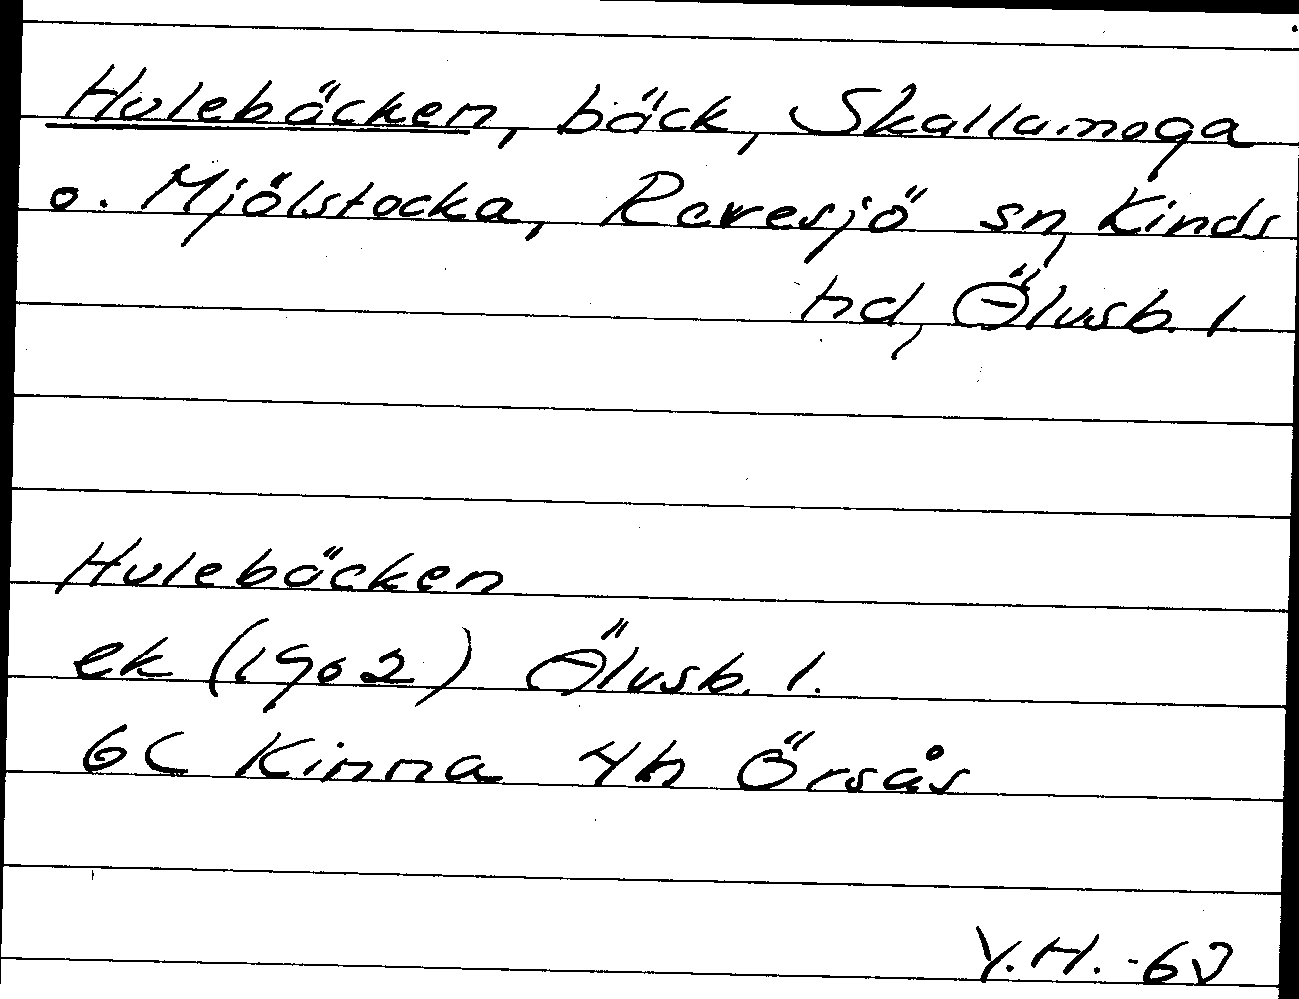 Hulebäcken, bäck, Skallamoga
o. Mjölstocka, Revesjö sn, Kinds
hd, Älvsb. l.
Hulebäcken
ek (1902) Älvsb. l.
6C Kinna 4h Örsås
Y.H. -60